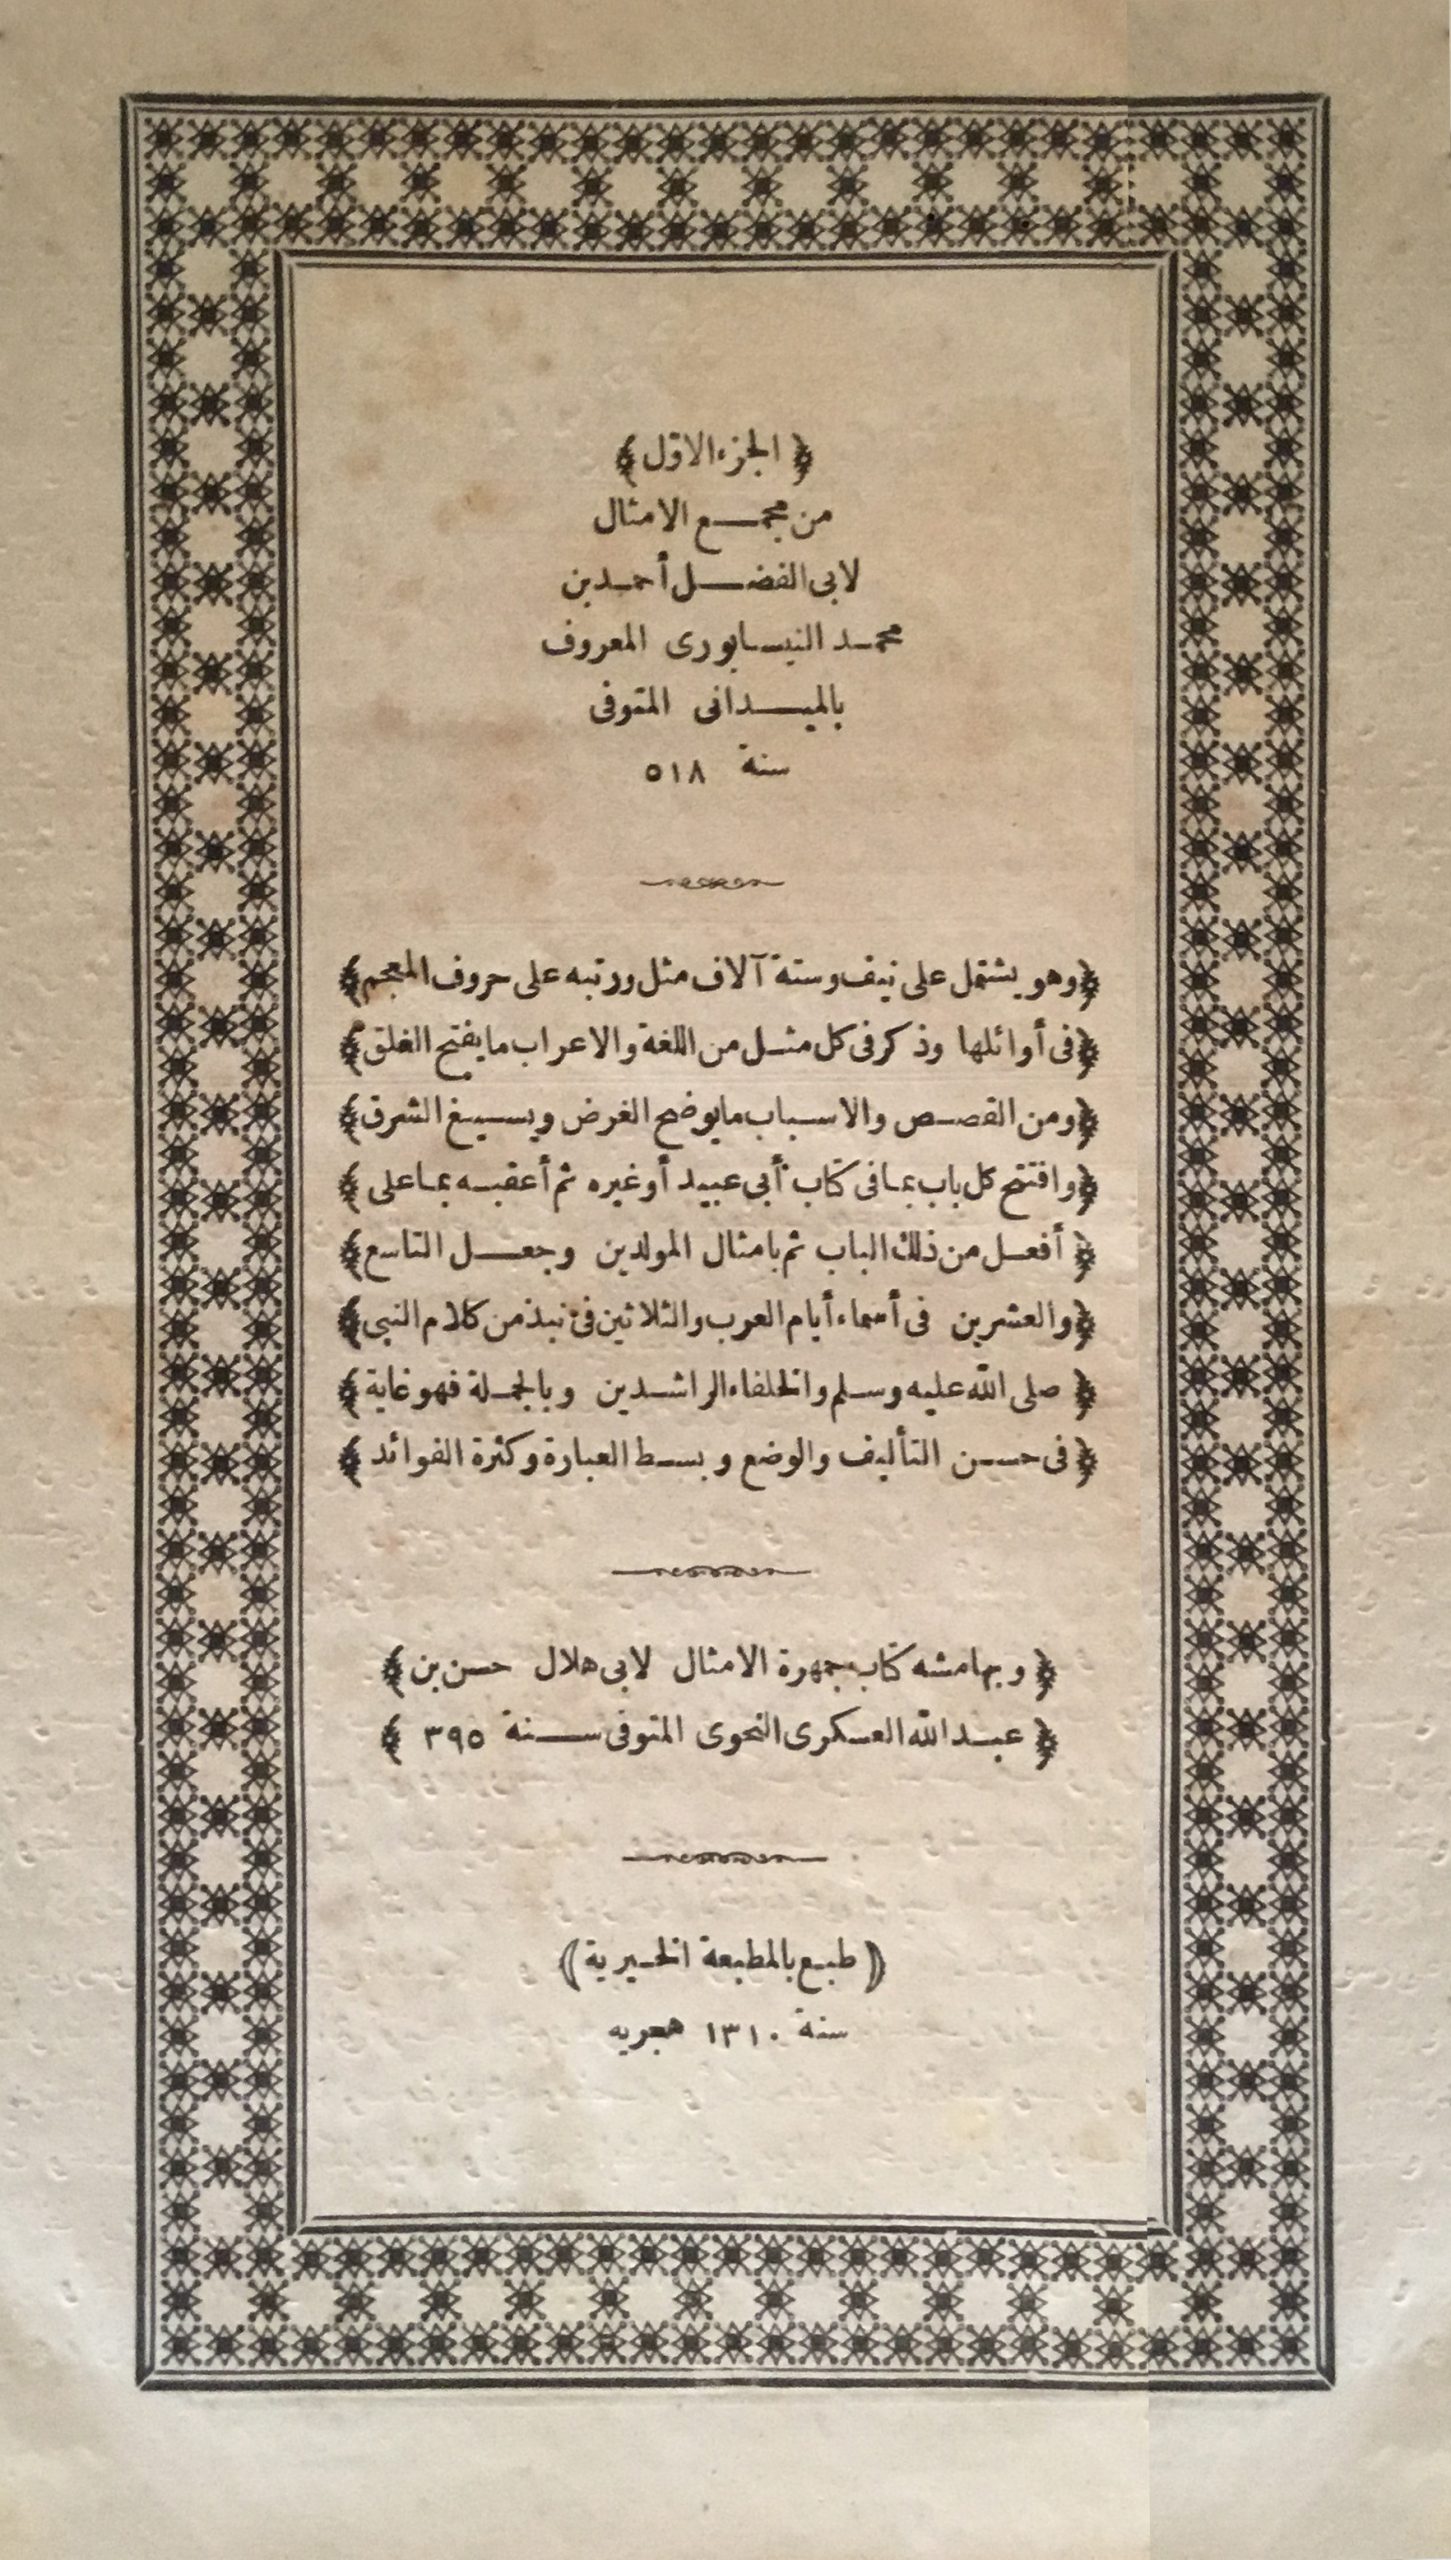 ﴿الجزء الاوّل﴾
من مجمع الامثال
لابى الفضل أحمد بن
محمد النيسابورى المعروف
بالميدانى المتوفى
سنة ٥١٨
﴿وهو يشتمل على نيف وستة آلاف مثل ورتبه على حروف المعجم﴾
﴿فى أوائلها وذكر فى كل مثل من اللغة والاعراب ما يفتح الغلق﴾
﴿ومن القصص والاسباب ما يوضح الغرض ويسيغ الشرق﴾
﴿وافتتح كل باب بما فى كتاب أبى عبيد أو غيره ثم أعقبه بما على﴾
﴿أفعل من ذلك الباب ثم بامثال المولدين وجعل التاسع﴾
﴿والعشرين فى أسماء أيام العرب والثلاثين فى نبذ من كلام النبى﴾
﴿صلى الله عليه وسلم والخلفاء الراشدين وبالجملة فهو غاية﴾
﴿فى حسن التأليف والوضع وبسط العبارة وكثرة الفوائد﴾
﴿وبهامشه كتاب جمهرة الامثال لابى هلال حسن بن﴾
﴿عبد الله العسكرى النحوى المتوفى سنة ٣٩٥﴾
(طبع بالمطبعة الخيرية)
سنة ١٣١٠ هجريه